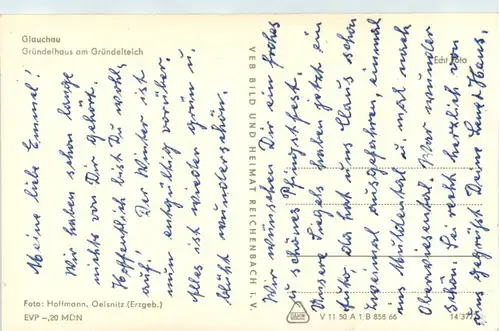 Glauchau
Gründelhaus am Gründelteich
Meine liebe Emmel!
Wir haben schon lange
nichts von Dir gehört.
Hoffentlich bist Du wohl-
auf! Der Winter ist
nun entgültig vorüber.
Alles ist wieder grün u.
blüht wunderschön.
Wir wünschen Dir ein frohes
u. schönes Pfingstfest.
Unsere Siegels haben jetzt ein
Auto, da hat uns Claus schon
zweimal ausgefahren, einmal
ins Muldental u. mal nach
Oberwiesental. War wunder
schön. Sei recht herzlich von
uns gegrüßt Deine Hans.
VEB BILD UND HEIMAT REICHENBACH i. V.
Echt Foto
Foto: Hoffmann, Oelsnitz (Erzgeb.)
EVP –,20 MDN
V 11 50 A 1 B 858 66